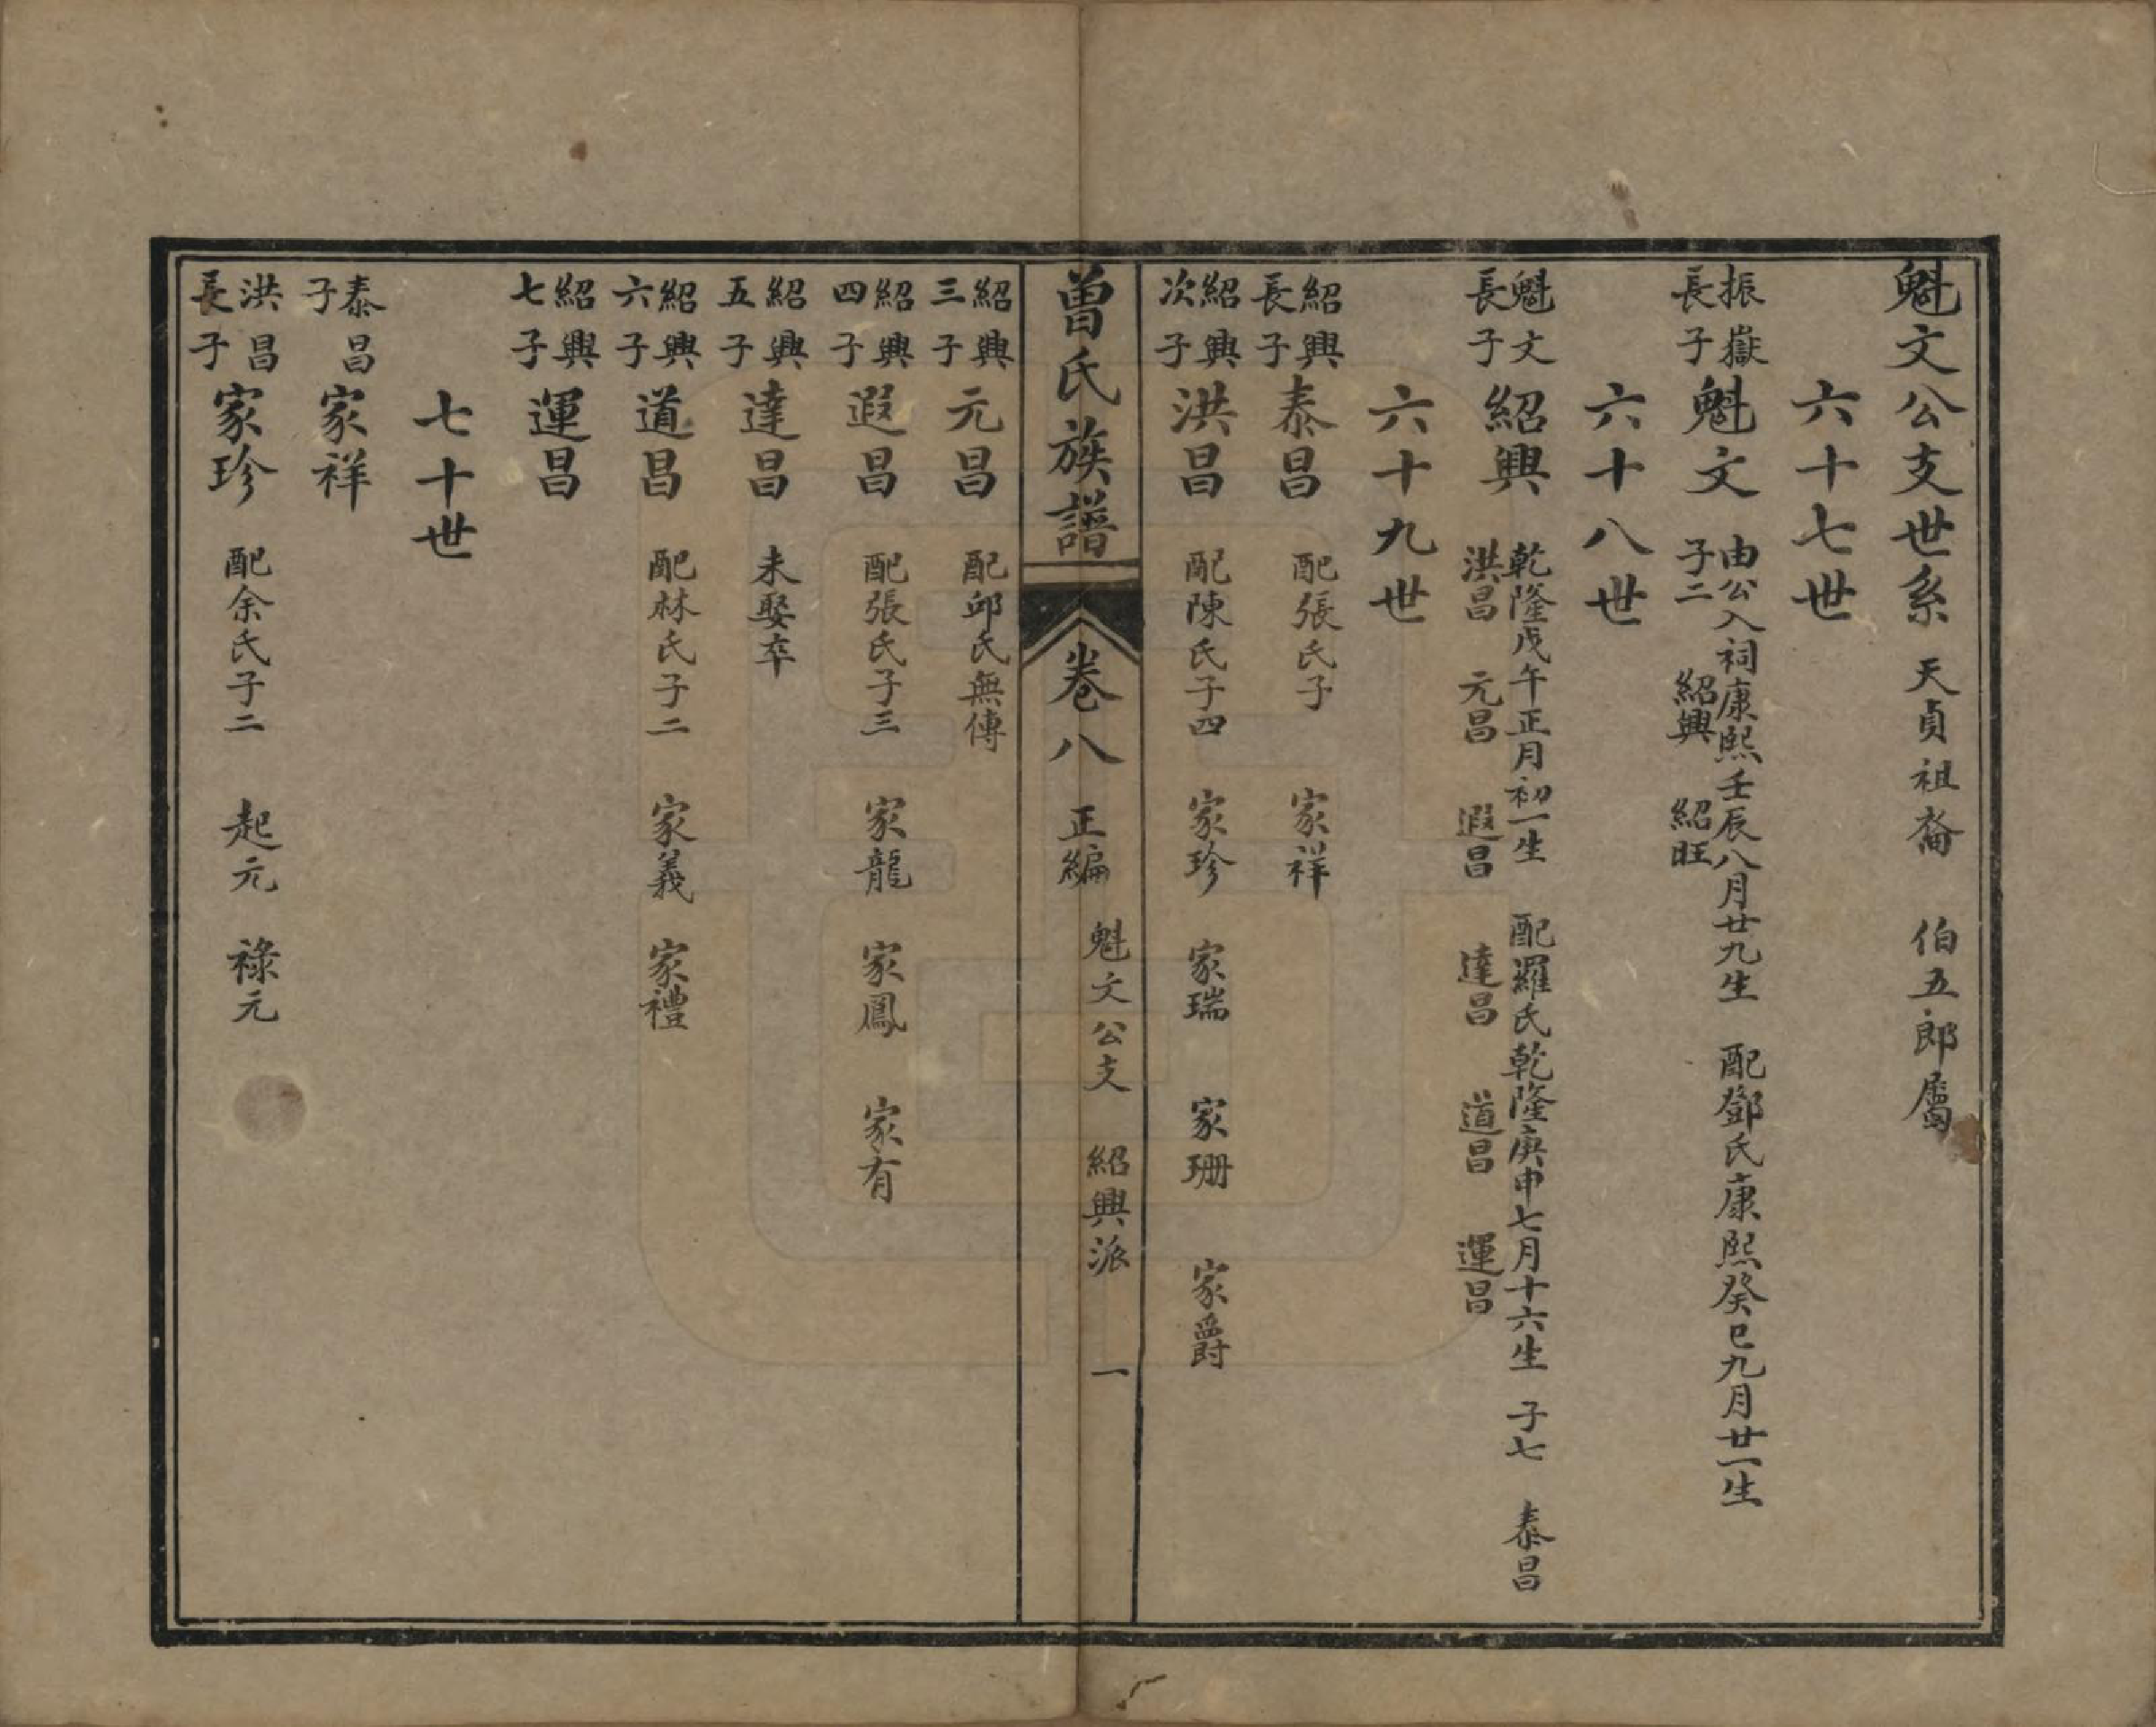 魁文公支世系 天貞祖裔 伯五郎屬
六十七世
振嶽
長子
魁文
由公入祠康熙壬辰八月廿九生 配鄧氏康熙癸巳九月廿一生
子二 紹興 紹旺
六十八世
魁文
長子
紹興
乾隆戊午正月初一生 配羅氏乾隆庚申七月十六生 子七 泰昌
洪昌 元昌 遐昌 達昌 道昌 運昌
六十九世
紹興
長子
泰昌 配張氏子 家祥
紹興
次子
洪昌 配陳氏子四 家珍 家瑞 家珊 家爵
曾氏族譜 卷八 正編 魁文公支 紹興派 一
紹興
三子
元昌 配邱氏無傳
紹興
四子
遐昌 配張氏子三 家龍 家鳳 家有
紹興
五子
達昌 未娶卒
紹興
六子
道昌 配林氏子二 家義 家禮
紹興
七子
運昌
七十世
泰昌
子
家祥
洪昌
長子
家珍 配余氏子二 起元 祿元